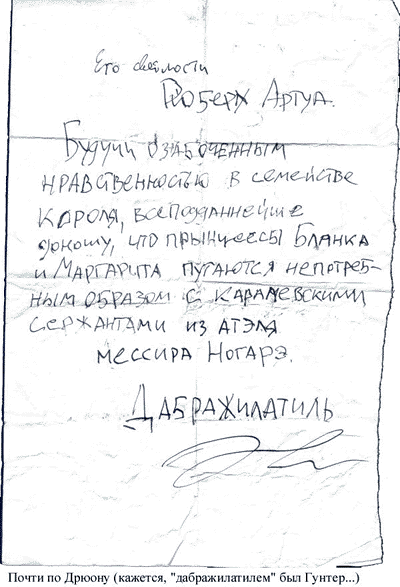 Его светлости
Роберт Артуа.
Будучи озабоченным
нравственностью в семействе
Короля, всеподданнейше
доношу, что прынцессы Бланка
и Маргарита путаются непотреб-
ным образом с каралевскими
сержантами из атэля
мессира Ногарэ.
Дабражилатиль
Почти по Дрюону (кажется, "дабражилатилем" был Гунтер...)